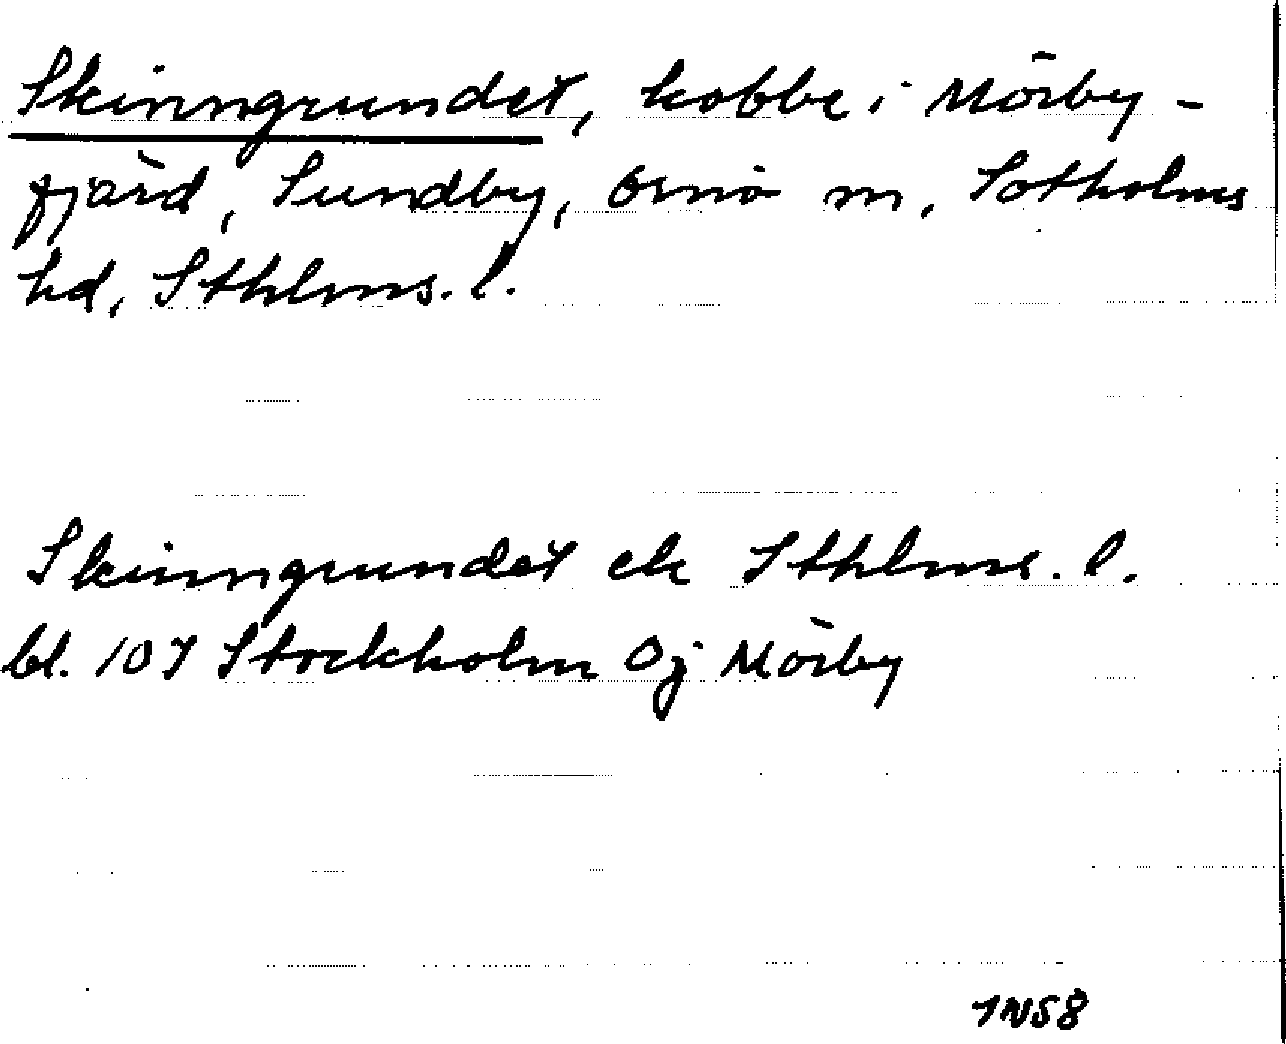 Skinngrundet, kobbe i Mörby-
fjärd, Sundby, Ornö m, Sotholms
hd, Sthlms. l.
Skinngrundet ek Sthlms. l.
bl. 107 Stockholm Oj Mörby
1N58